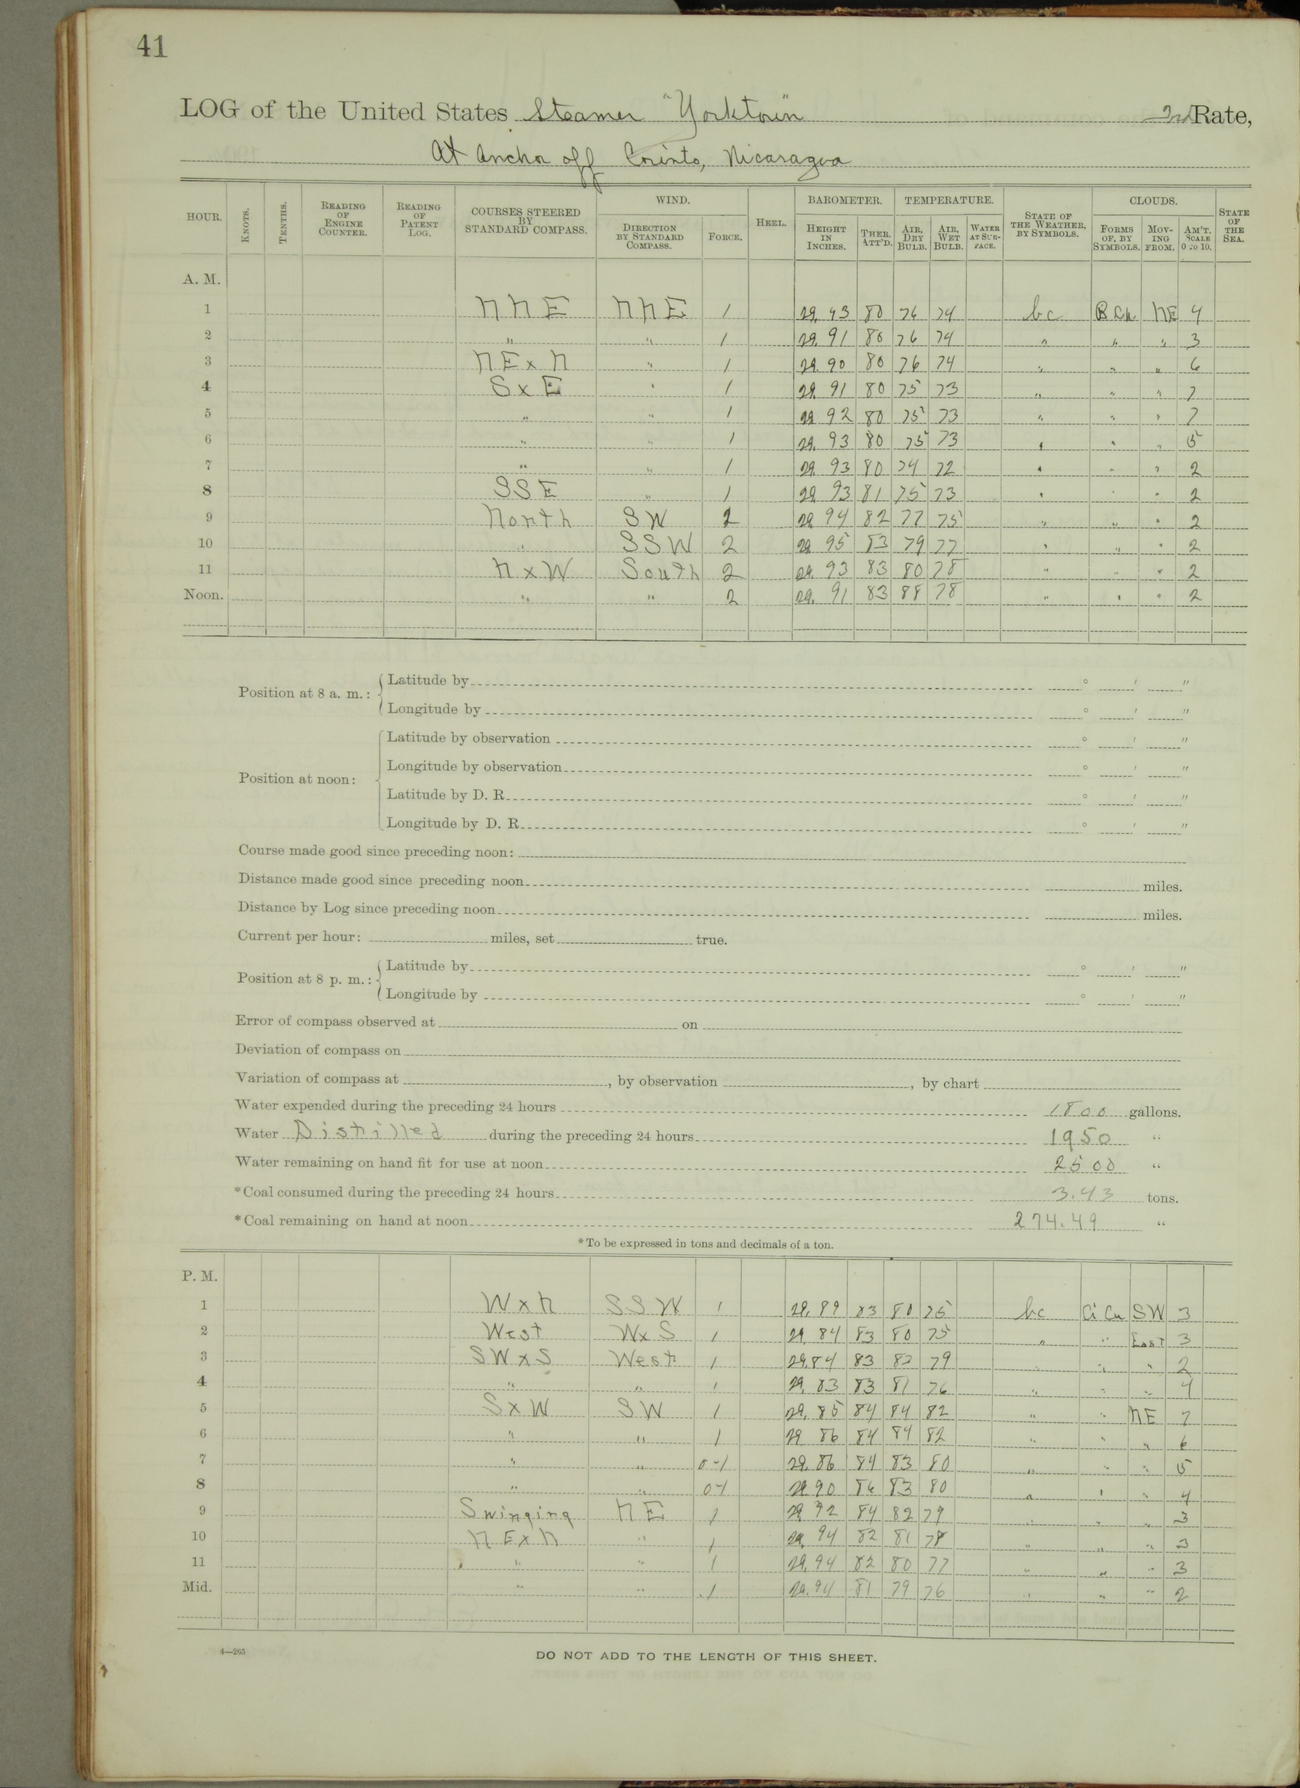 41
LOG of the United States Steamer "Yorktown" 3rd Rate,
At Anchor off Corinto, Nicaragua
HOUR. KNOTS. TENTHS. READING OF ENGINE COUNTER. READING OF PATENT LOG. COURSES STEERED BY STANDARD COMPASS. WIND. DIRECTION BY STANDARD COMPASS. FORCE. HEEL. BAROMETER. HEIGHT IN INCHES. THER. ATT'D. TEMPERATURE. AIR, DRY BULB. AIR, WET BULB. WATER AT SURFACE. STATE OF THE WEATHER, BY SYMBOLS. CLOUDS. FORMS OF, BY SYMBOLS. MOVING FROM. AM'T. SCALE 0 TO 10. STATE OF THE SEA.
A. M.
1 NNE NNE 1 29.93 80 76 74 bc NE 4
2 " " 1 29.91 80 76 74 " " " 3
3 NExN " 1 29.90 80 76 74 " " " 6
4 SxE " 1 29.91 80 75 73 " " " 7
5 " " 1 29.92 80 75 73 " " " 7
6 " " 1 29.93 80 75 73 " " " 5
7 " " 1 29.93 80 74 72 " " " 2
8 SSE " 1 29.93 81 75 73 " " " 2
9 North SW 2 29.94 82 77 75 " " " 2
10 " SSW 2 29.95 83 79 77 " " " 2
11 NxW South 2 29.93 83 80 78 " " " 2
Noon. " " 2 29.91 83 88 78 " " " 2
Position at 8 a. m.: Latitude by ° ' "
Longitude by ° ' "
Position at noon: Latitude by observation ° ' "
Longitude by observation ° ' "
Latitude by D. R. ° ' "
Longitude by D. R. ° ' "
Course made good since preceding noon:
Distance made good since preceding noon miles.
Distance by Log since preceding noon miles.
Current per hour: miles, set true.
Position at 8 p. m.: Latitude by ° ' "
Longitude by ° ' "
Error of compass observed at on
Deviation of compass on
Variation of compass at , by observation , by chart
Water expended during the preceding 24 hours 1800 gallons.
Water Distilled during the preceding 24 hours 1950 "
Water remaining on hand fit for use at noon 2500 "
*Coal consumed during the preceding 24 hours 3.43 tons.
*Coal remaining on hand at noon 274.49 "
*To be expressed in tons and decimals of a ton.
P. M.
1 WxN SSW 1 29.89 83 80 75 bc Ci Cu SW 3
2 West WxS 1 29.84 83 80 75 " " East 3
3 SWxS West 1 29.84 83 82 79 " " " 2
4 " " 1 29.83 83 81 76 " " " 4
5 SxW SW 1 29.85 84 84 82 " " NE 7
6 " " 1 29.86 84 84 82 " " " 6
7 " " 0-1 29.86 84 83 80 " " " 5
8 " " 0-1 29.90 86 83 80 " " " 4
9 Swinging NE 1 29.92 84 82 79 " " " 3
10 NExN " 1 29.94 82 81 78 " " " 3
11 " " 1 29.94 82 80 77 " " " 3
Mid. " " 1 29.94 81 79 76 " " " 2
4—265
DO NOT ADD TO THE LENGTH OF THIS SHEET.